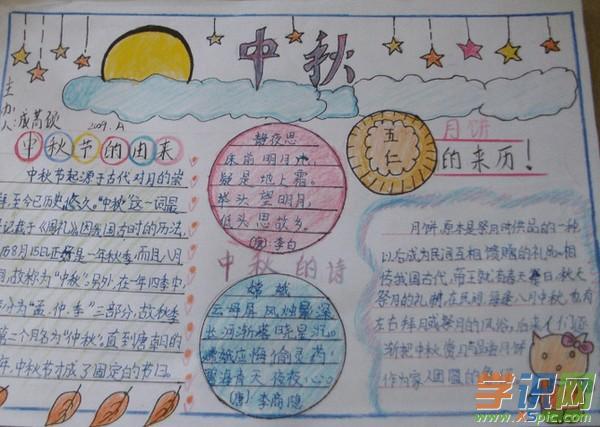 中秋
主办人:
2009.
中秋节的由来
中秋节起源于古代对月的崇
拜,至今已历史悠久。“中秋”这一词最
记载于《周礼》因我国古时的历法,
历8月15日正好是一年秋季,而且八月
故称为“中秋”。另外,在一年四季中,
分为“孟、仲、季”三部分,故秋季
第二个月名为“仲秋”,直到唐朝的
年,中秋节才成了固定的节日。
静夜思
床前明月光,
疑是地上霜。
举头望明月,
低头思故乡。
(唐)李白
中秋的诗
嫦娥
云母屏风烛影深
长河渐落晓星沉。
嫦娥应悔偷灵药
碧海青天夜夜心。
(唐)李商隐
五仁
月饼
的来历!
月饼原本是祭月时供品的一种
以后成为民间互相馈赠的礼品。相
传我国古代,帝王就有春天祭日,秋天
祭月的礼制,在民间,每逢八月中秋,也有
左右拜月或祭月的风俗,后来人们逐
渐把中秋赏月与品尝月饼
作为家人团圆的象
学识网
www.XSpic.com